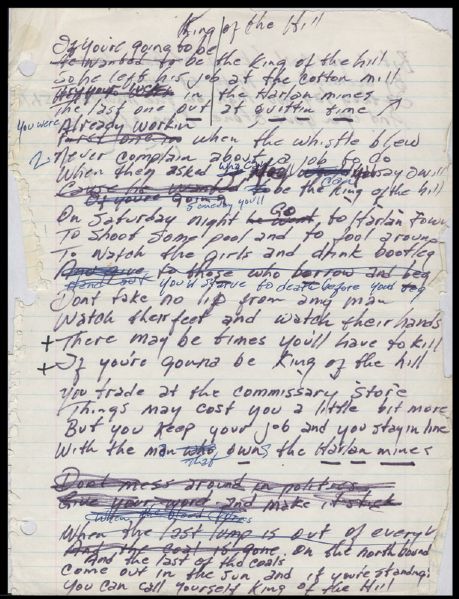 King of the Hill
If You're going to be
He wanted to be the King of the hill
So he left his job at the cotton mill
in the Harlan mines
The last one out at quittin time
You were Already workin
First one in when the whistle blew
Never complain about a job to do
When they asked who can say I will
Cause he wanted to be the King of the hill
If You're Going
Someday you'll
On Saturday night he went Go to Harlan Town
To Shoot Some pool and to fool around
To watch the girls and drink bootleg
And give to those who borrow and beg
And but you'd starve to death before you'd beg
Dont take no lip from any man
Watch their feet and watch their hands
+ There may be times you'll have to kill
+ If you're gonna be King of the hill
You trade at the commissary Store
Things may cost you a little bit more
But you keep your job and you stay in line
With the man who that owns the Harlan mines
Dont mess around in politics
Give your word and make it stick
When the
When the last lump is out of every
And the coal is gone. On the North bound
And the last of the coals
Come out in the Sun and if you're standing
You can call yourself King of the Hill